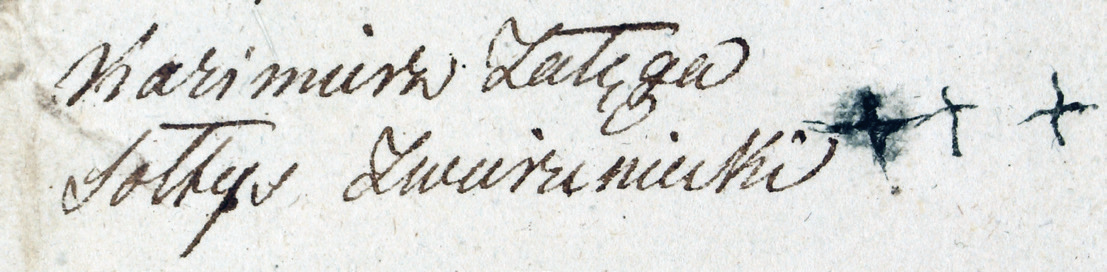 Kazimierz Załęga
Sołtys Zwierzeniecki +++